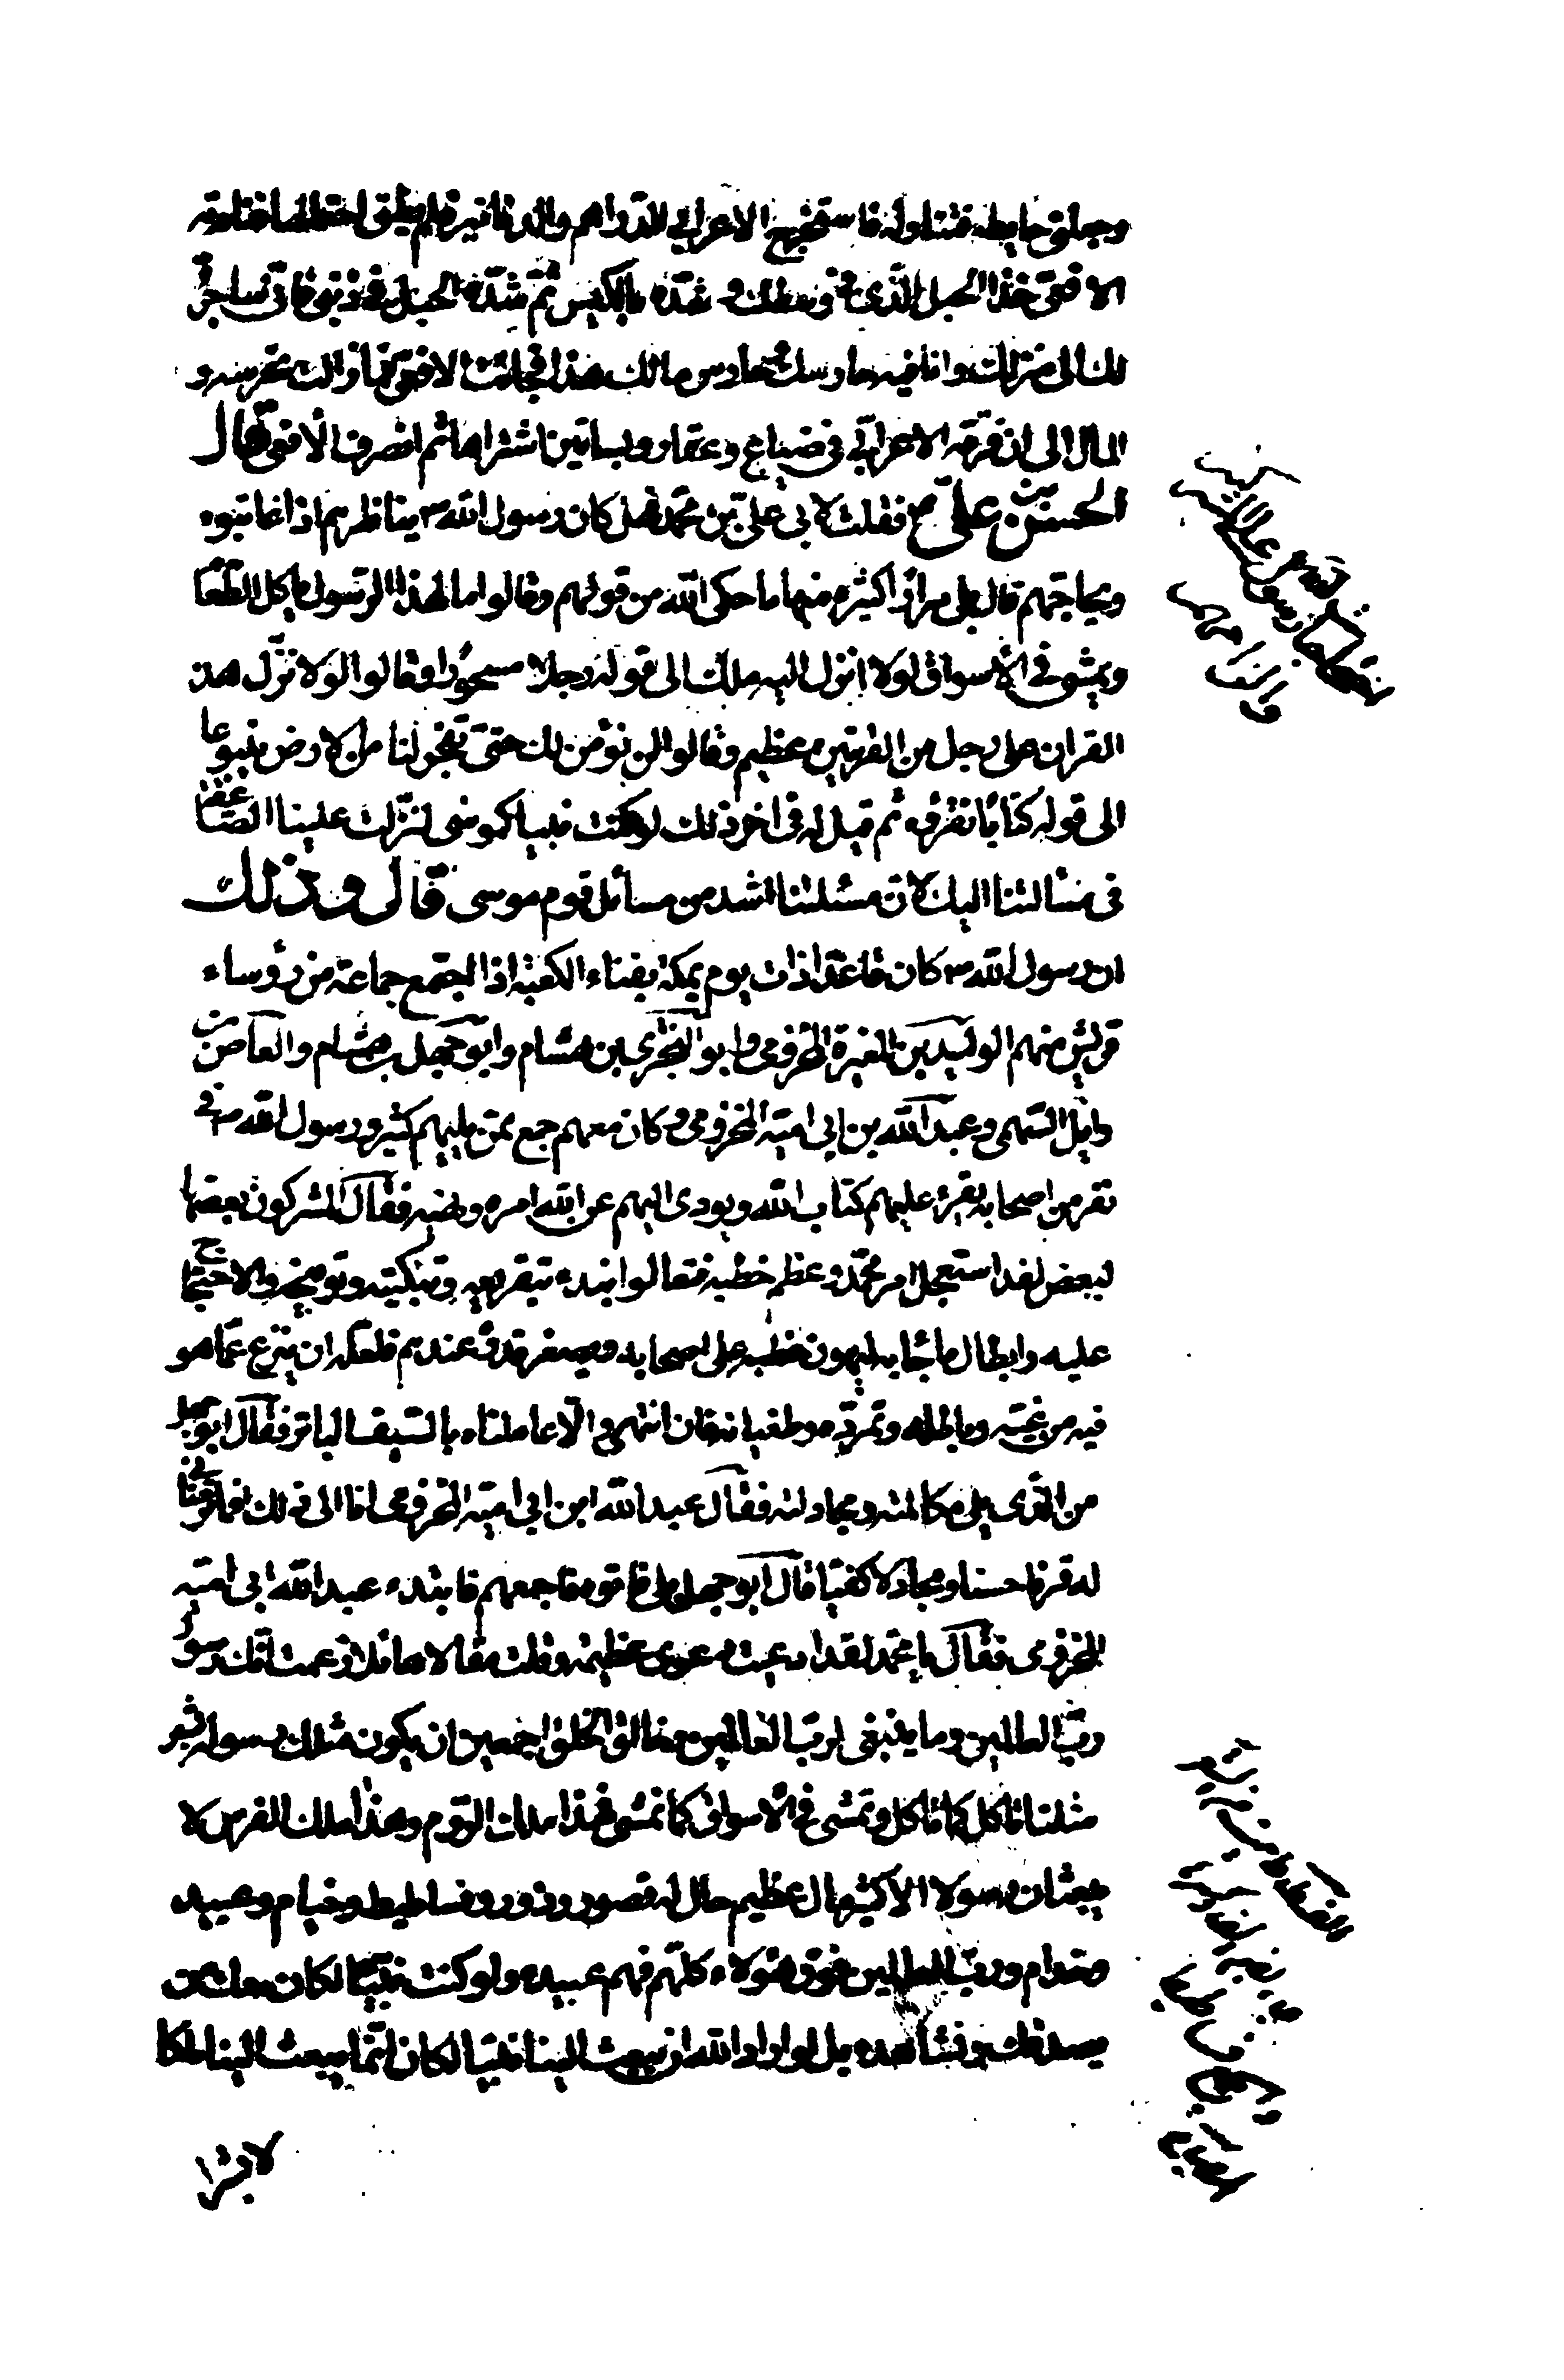 وجلنى حايطه فتناوله فاستخرج الاعرابي الدراهم والدنانير فلم يطق احتمالها فنادته
الافعى خذ الحبل الذى فى وسطك وشده بالكيس ثم شد الحبل فى ذنبى فانى ساجره
لك الى منزلك وانا فيه حارسك وحارس مالك هذا فجائت الافعى فما زالت تحرسه و
المال الى ان فرقه الاعرابي فى ضياع وعقار وبساتين اشتراها ثم انصرف الافعى قال
الحسن بن على ع فقلت لابى على بن محمد فهل كان رسول الله ص يناظرهم اذا عاتبوه
ويحاجهم قال بلى مرارا كثيره منها ما حكى الله من قولهم وقالوا ما لهذا الرسول ياكل الطعام
ويمشى فى الاسواق لولا انزل اليه ملك الى قوله رجلا مسحورا وقالوا لولا نزل هذا
القران على رجل من القريتين عظيم وقالوا لن نؤمن لك حتى تفجر لنا من الارض ينبوعا
الى قوله كتابا نقرؤه ثم قيل له فى اخر ذلك لو كنت نبيا كموسى لنزلت علينا الصاعقة
فى مسألتنا اليك لان مسئلتنا اشد من مسائل قوم موسى قال وذلك
ان رسول الله ص كان قاعدا ذات يوم بمكة بفناء الكعبة اذا اجتمع جماعة من رؤساء
قريش منهم الوليد بن المغيرة المخزومى وابو البخترى بن هشام وابو جهل بن هشام والعاص بن
وايل السهمى وعبد الله بن ابى امية المخزومى وكان معهم جمع ممن يليهم كثير ورسول الله ص فى
نفر من اصحابه يقرء عليهم كتاب الله ويودى اليهم عن الله امره ونهيه فقال المشركون بعضها
لبعض لقد استفحل امر محمد وعظم خطبه فتعالوا نبدء بتقريعه وتبكيته وتوبيخه والاحتجاج
عليه وابطال ما جا به ليهون خطبه على اصحابه ويصغر قدره عندهم فلعله ان ينزع عما هو
فيه من غيه وباطله وتمرده وطغيانه فان انتهى والا عاملناه بالسيف الباتر فقال ابو جهل
من الذى يلى مكالمته ومجادلته فقال عبد الله ابن ابى امية المخزومى انا الى ذلك افما ترضانى
له قرنا حسنا ومجادلا كفيا قال ابو جهل بلى فاتوه باجمعهم فابتدء عبد الله ابى امية
المخزومى فقال يا محمد لقد ادعيت دعوى عظيمة وقلت مقالا هائلا زعمت انك رسول
رب العالمين وما ينبغى لرب العالمين وخالق الخلق اجمعين ان يكون مثلك رسوله بشر
مثلنا تاكل كما ناكل وتمشى فى الاسواق كما نمشى فهذا ملك الروم وهذا ملك الفرس لا
يبعثان رسولا الا كثير مال عظيم حال له قصور ودور وفساطيط وخيام وعبيد
وخدام ورب العالمين فوق هؤلاء كلهم فهم عبيده ولو كنت نبيا لكان معك ملك
يصدقك ونشاهده بل لو اراد الله ان يبعث الينا نبيا لكان انما يبعث الينا ملكا
لا بشرا